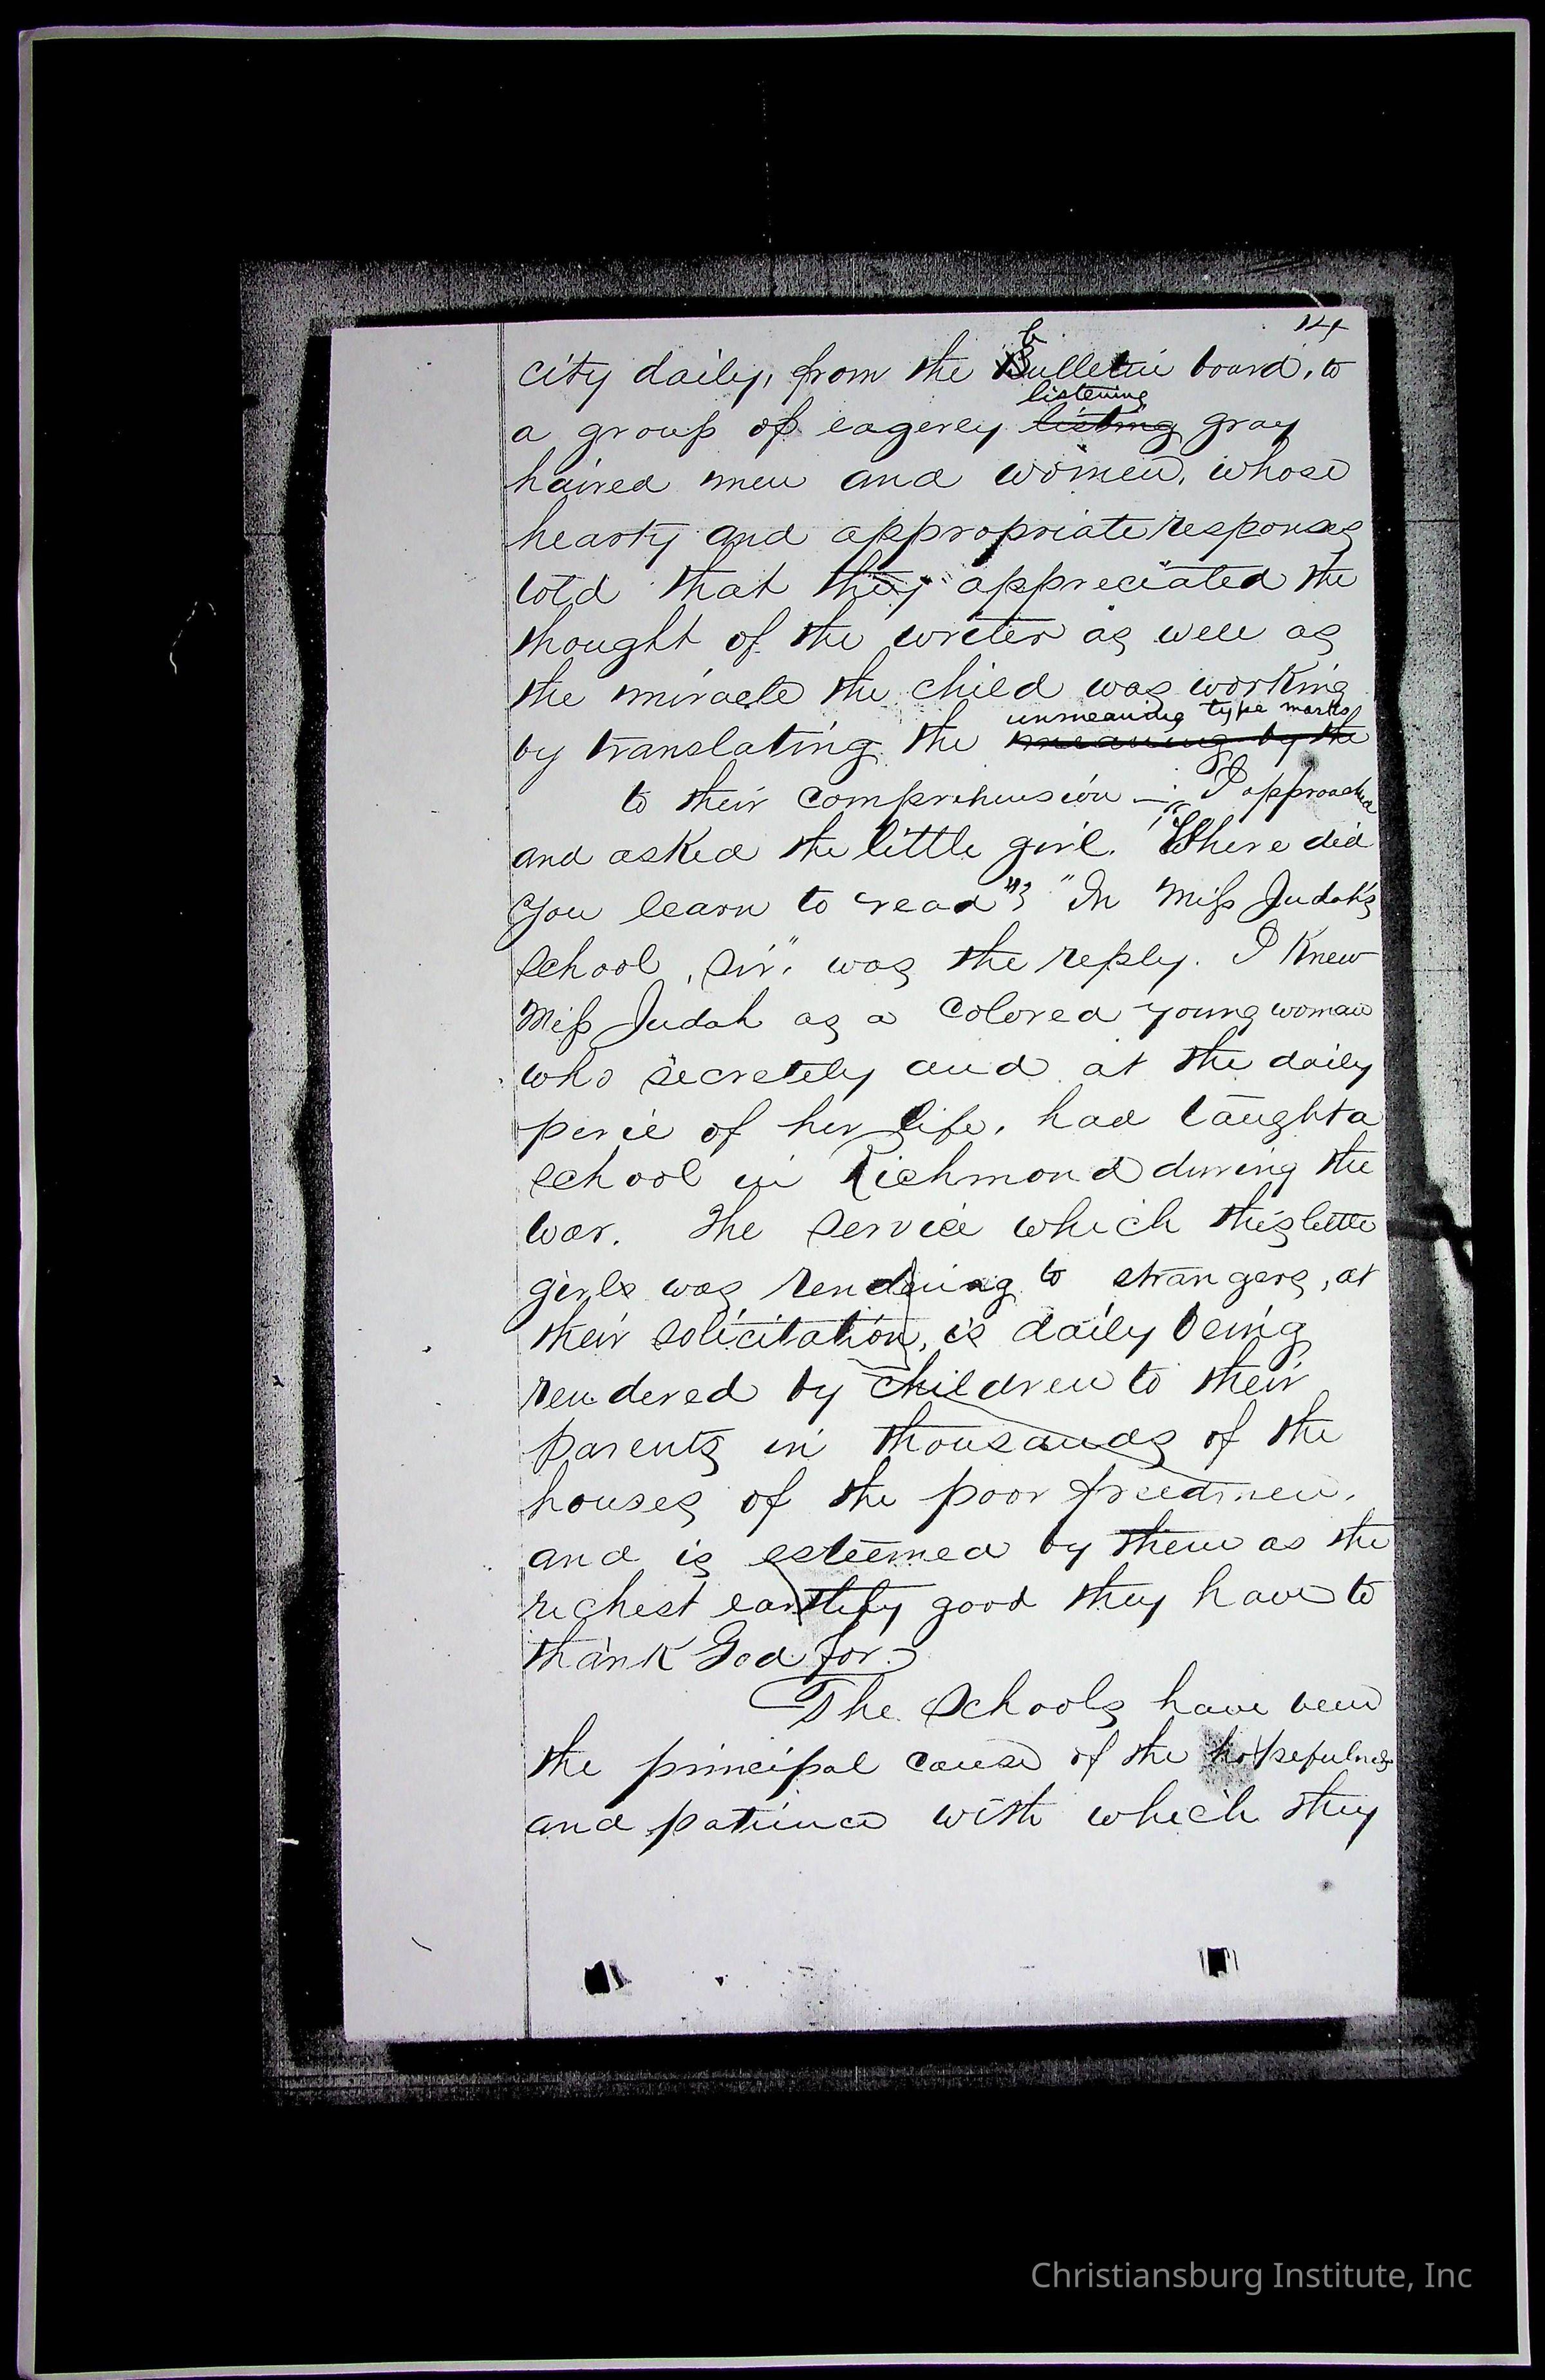 14
city daily, from the bulletin board, to
listening
a group of eagerly listing gray
haired men and women, whose
hearty and appropriate responses
told that they appreciated the
thought of the writer as well as
the miracle the child was working
unmeaning type marks
by translating the meaning by the
to their comprehension —; I approached
and asked the little girl. "Where did
you learn to read"? "In Miss Judah's
school, sir," was the reply. I knew
Miss Judah as a colored young woman
who secretely and at the daily
peril of her life, had taught a
school in Richmond during the
war. The service which this little
girls was rendring to strangers, at
their solicitation, is daily being
rendered by children to their
parents in thousands of the
houses of the poor freedmen,
and is esteemed by them as the
richest earthly good they have to
thank God for.
The Schools have been
the principal cause of the hopefulness
and patience with which they
Christiansburg Institute, Inc